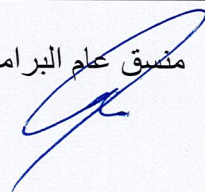 منسق عام البرام